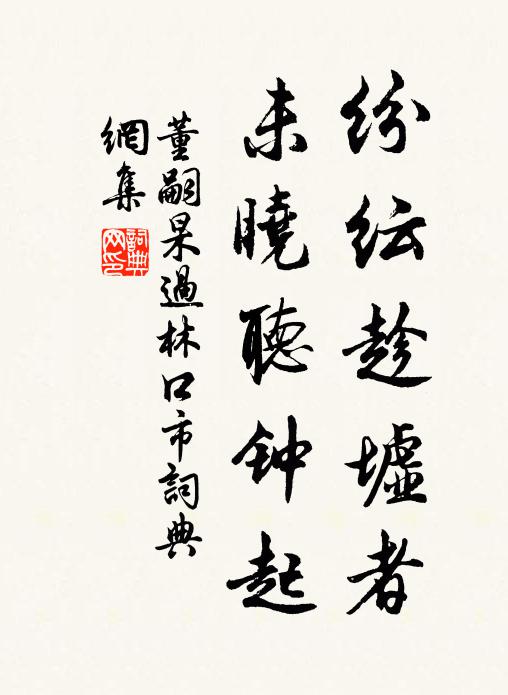 纷纭趁墟者
未曉聽钟起
董嗣杲過林口市詞典
網集
詞典
网印